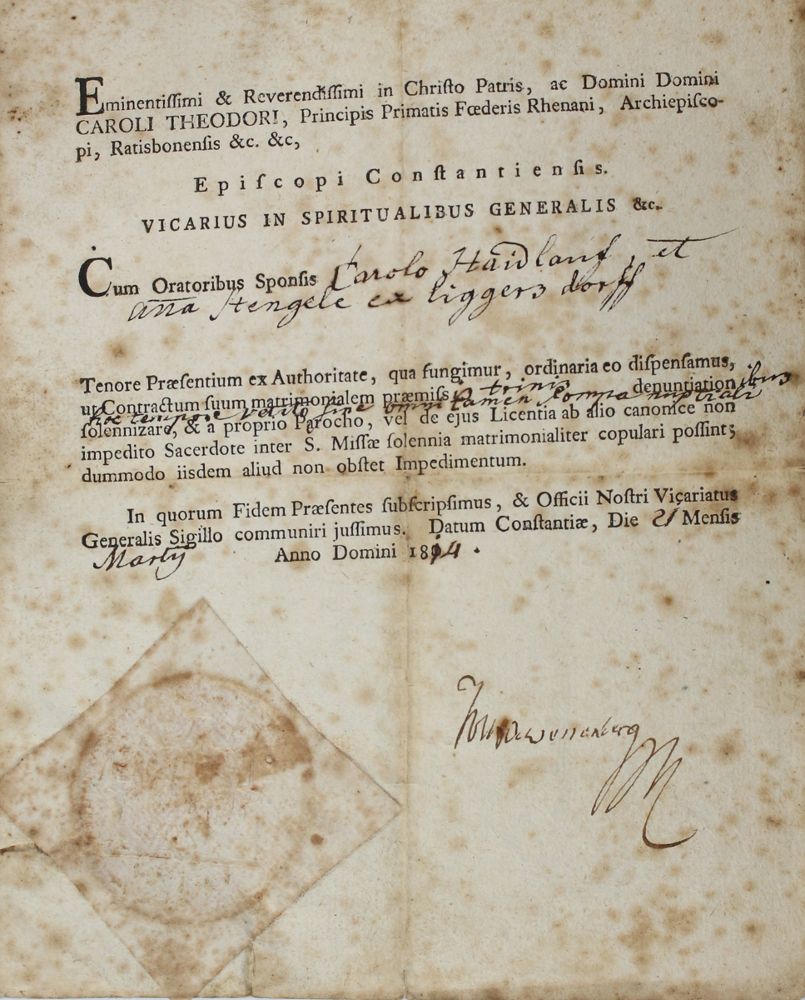 Eminentiſſimi & Reverendiſſimi in Chriſto Patris, ac Domini Domini
CAROLI THEODORI, Principis Primatis Fœderis Rhenani, Archiepiſco-
pi, Ratisbonenſis &c. &c,
Epiſcopi Conſtantienſis.
VICARIUS IN SPIRITUALIBUS GENERALIS &c.
Cum Oratoribus Sponſis Carolo Haidlauf, et
Anna Stengele ex liggersdorff
Tenore Præſentium ex Authoritate, qua fungimur, ordinaria eo diſpenſamus,
ut Contractum ſuum matrimonialem præmiſſis trinis denuntiationibus
hoc tempore vetito sine omni tamen pompa nuptiali
ſolennizare, & a proprio Parocho, vel de ejus Licentia ab alio canonice non
impedito Sacerdote inter S. Miſſæ ſolennia matrimonialiter copulari poſſint;
dummodo iisdem aliud non obſtet Impedimentum.
In quorum Fidem Præſentes ſubſcripſimus, & Officii Noſtri Vicariatus
Generalis Sigillo communiri juſſimus. Datum Conſtantiæ, Die 21 Menſis
Martij Anno Domini 1814.
Wessenberg